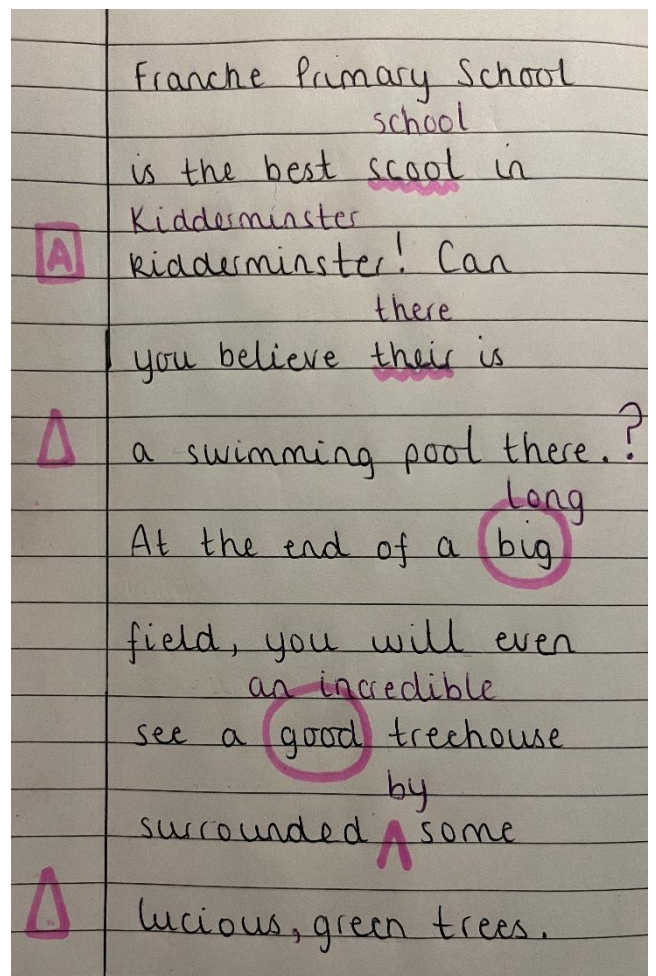 Franche Primary School
school
is the best scool in
Kidderminster
A
kidderminster! Can
there
you believe their is
a swimming pool there.?
long
At the end of a big
field, you will even
an incredible
see a good treehouse
by
surrounded some
lucious, green trees.